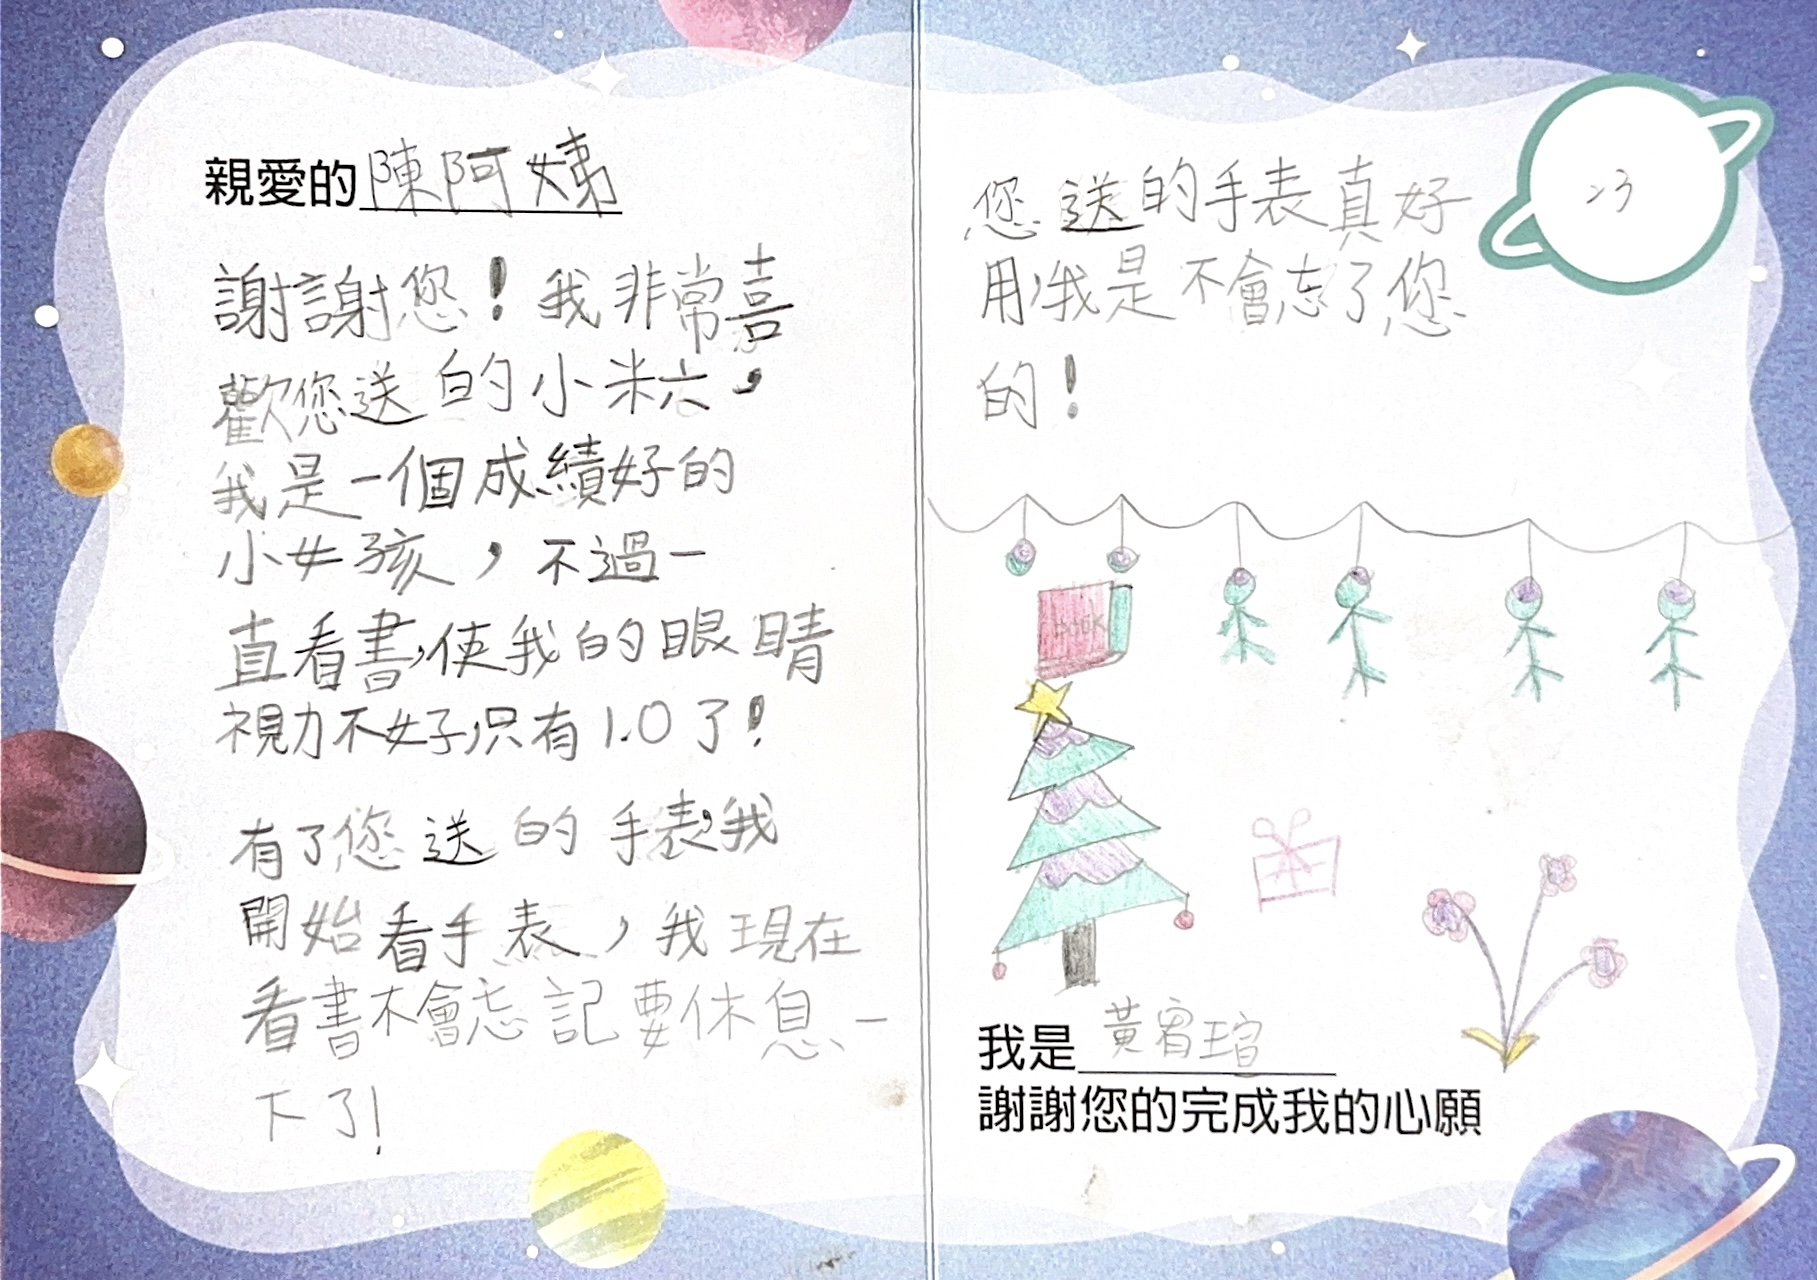 親愛的陳阿姨
謝謝您！我非常喜
歡您送的小米六，
我是一個成績好的
小女孩，不過一
直看書，使我的眼睛
視力不好，只有1.0了！
有了您送的手表，我
開始看手表，我現在
看書不會忘記要休息一
下了！
23
您送的手表真好
用，我是不會忘了您
的！
BOOK
我是黃宥瑄
謝謝您的完成我的心願